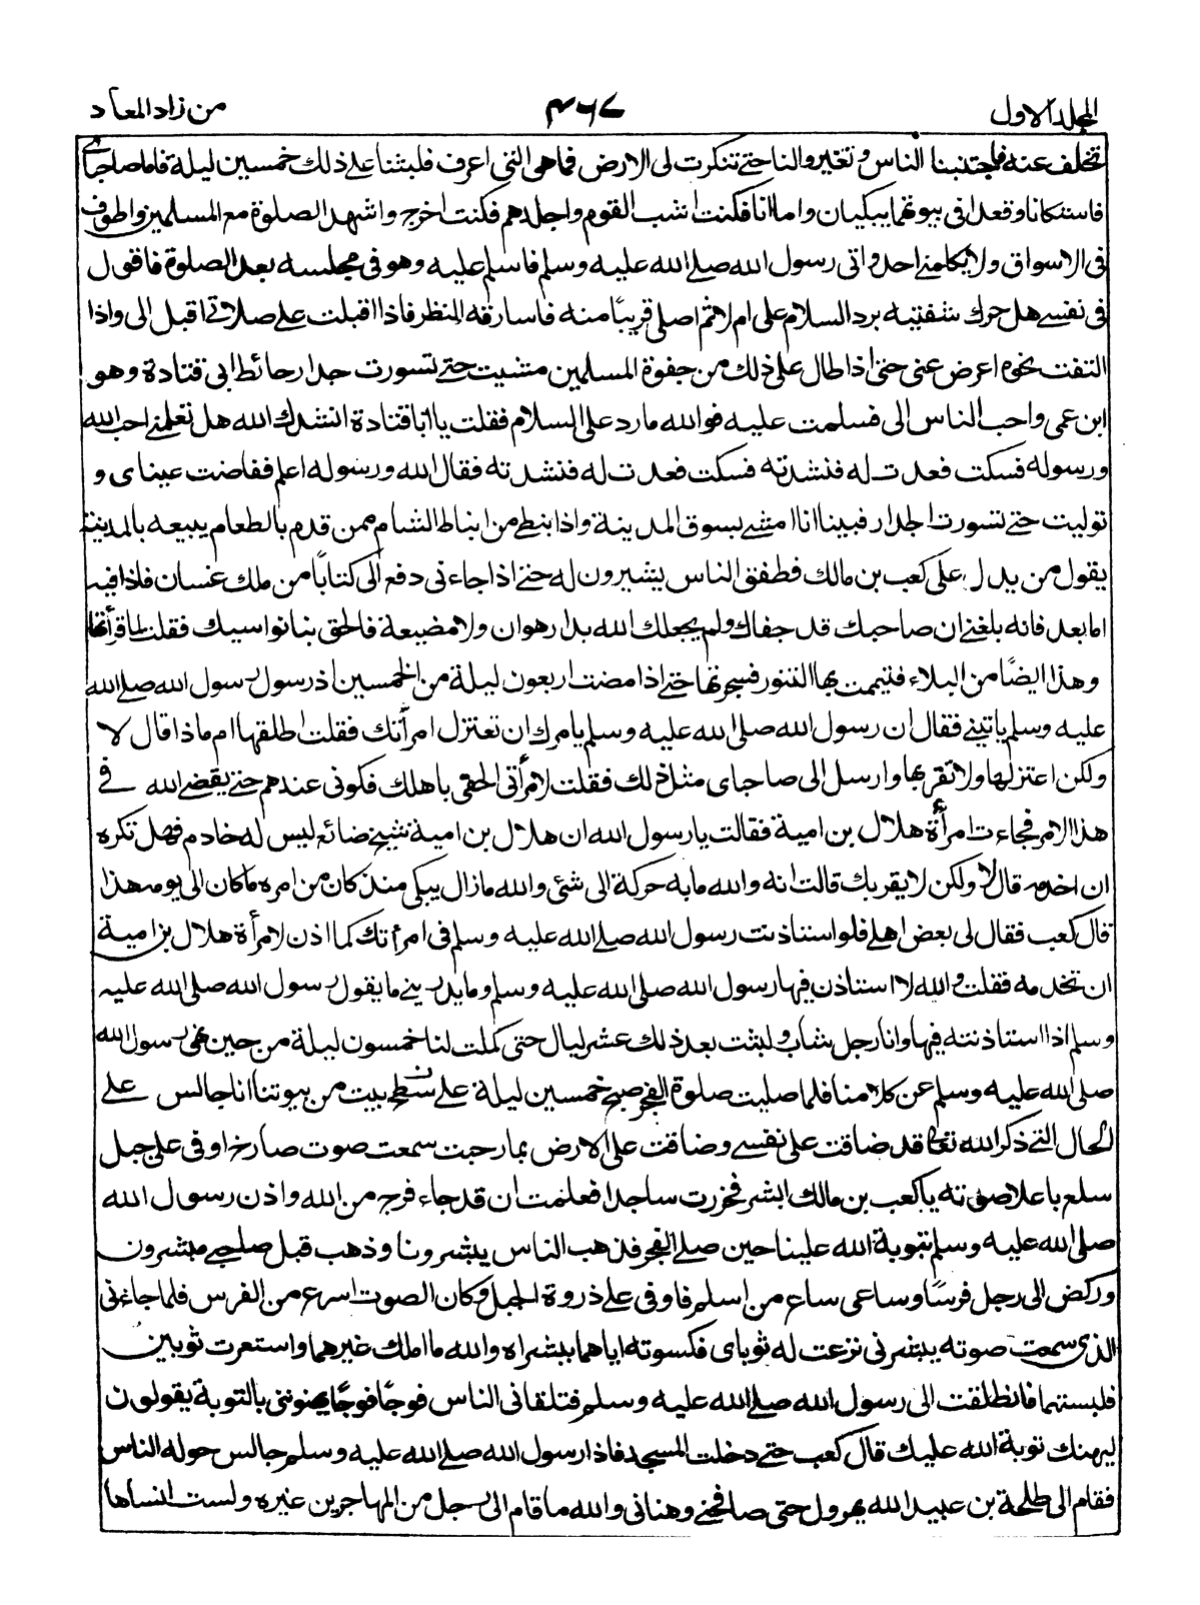 المجلد الاول ٤٦٧ من زاد المعاد
تخلف عنه فاجتنبنا الناس وتغيروا لنا حتے تنكرت لی الارض فما هی التی اعرف فلبثنا علے ذلك خمسین لیلة فاما صاحبای
فاستكانا وقعدا فی بیوتهما یبكیان واما انا فكنت اشب القوم واجلدهم فكنت اخرج واشهد الصلوة مع المسلمین واطوف
فی الاسواق ولا یكلمنے احد واتی رسول الله صلے الله علیه وسلم فاسلم علیه وهو فی مجلسه بعد الصلوة فاقول
فی نفسے هل حرك شفتیه برد السلام علی ام لا ثم اصلی قریبًا منه فاسارقه النظر فاذا اقبلت علے صلاتے اقبل الی واذا
التفت نحوه اعرض عنی حتی اذا طال علی ذلك من جفوة المسلمین مشیت حتے تسورت جدار حائط ابی قتادة وهو
ابن عمی واحب الناس الی فسلمت علیه فوالله ما رد علی السلام فقلت یا ابا قتادة انشدك الله هل تعلمنے احب الله
ورسوله فسكت فعدت له فنشدته فسكت فعدت له فنشدته فقال الله ورسوله اعلم ففاضت عینای و
تولیت حتے تسورت الجدار فبینا انا امشے بسوق المدینة واذا نبطے من انباط الشام ممن قدم بالطعام یبیعه بالمدینة
یقول من یدل علی كعب بن مالك فطفق الناس یشیرون له حتے اذا جاءنی دفع الی كتابًا من ملك غسان فاذا فیه
اما بعد فانه بلغنے ان صاحبك قد جفاك ولم یجعلك الله بدار هوان ولا مضیعة فالحق بنا نواسیك فقلت لما قرأتها
وهذا ایضًا من البلاء فتیممت بها التنور فسجرتها حتے اذا مضت اربعون لیلة من الخمسین اذ رسول رسول الله صلے الله
علیه وسلم یاتینے فقال ان رسول الله صلی الله علیه وسلم یامرك ان تعتزل امرأتك فقلت اطلقها ام ماذا قال لا
ولكن اعتزلها ولا تقربها وارسل الی صاحبای مثل ذلك فقلت لامرأتی الحقی باهلك فكونی عندهم حتے یقضے الله فے
هذا الامر فجاءت امرأة هلال بن امیة فقالت یا رسول الله ان هلال بن امیة شیخ ضائع لیس له خادم فهل تكره
ان اخدمه قال لا ولكن لا یقربك قالت انه والله ما به حركة الی شئی والله ما زال یبكی منذ كان من امره ما كان الی یومه هذا
قال كعب فقال لی بعض اهلے فلو استاذنت رسول الله صلے الله علیه وسلم فی امرأتك كما اذن لامرأة هلال بن امیة
ان تخدمه فقلت والله لا استاذن فیها رسول الله صلی الله علیه وسلم وما یدرینے ما یقول رسول الله صلی الله علیه
وسلم اذا استاذنته فیها وانا رجل شاب ولبثت بعد ذلك عشر لیال حتی كملت لنا خمسون لیلة من حین نهی رسول الله
صلی الله علیه وسلم عن كلامنا فلما صلیت صلوة الفجر صبح خمسین لیلة علے سطح بیت من بیوتنا انا جالس علے
الحال التے ذكر الله تعالی قد ضاقت علی نفسے وضاقت علی الارض بما رحبت سمعت صوت صارخ اوفی علی جبل
سلع باعلا صوته یا كعب بن مالك ابشر فخررت ساجدا فعلمت ان قد جاء فرج من الله واذن رسول الله
صلی الله علیه وسلم بتوبة الله علینا حین صلے الفجر فذهب الناس یبشروننا وذهب قبل صاحبے مبشرون
وركض الی رجل فرسًا وساعی ساع من اسلم فاوفی علے ذروة الجبل وكان الصوت اسرع من الفرس فلما جاءنی
الذی سمعت صوته یبشرنی نزعت له ثوبای فكسوته ایاهما ببشراه والله ما املك غیرهما واستعرت ثوبین
فلبستهما فانطلقت الی رسول الله صلے الله علیه وسلم فتلقانی الناس فوجًا فوجًا یهنوننی بالتوبة یقولون
لیهنك توبة الله علیك قال كعب حتے دخلت المسجد فاذا رسول الله صلے الله علیه وسلم جالس حوله الناس
فقام الی طلحة بن عبید الله یهرول حتی صافحنے وهنانی والله ما قام الی رجل من المهاجرین غیره ولست انساها